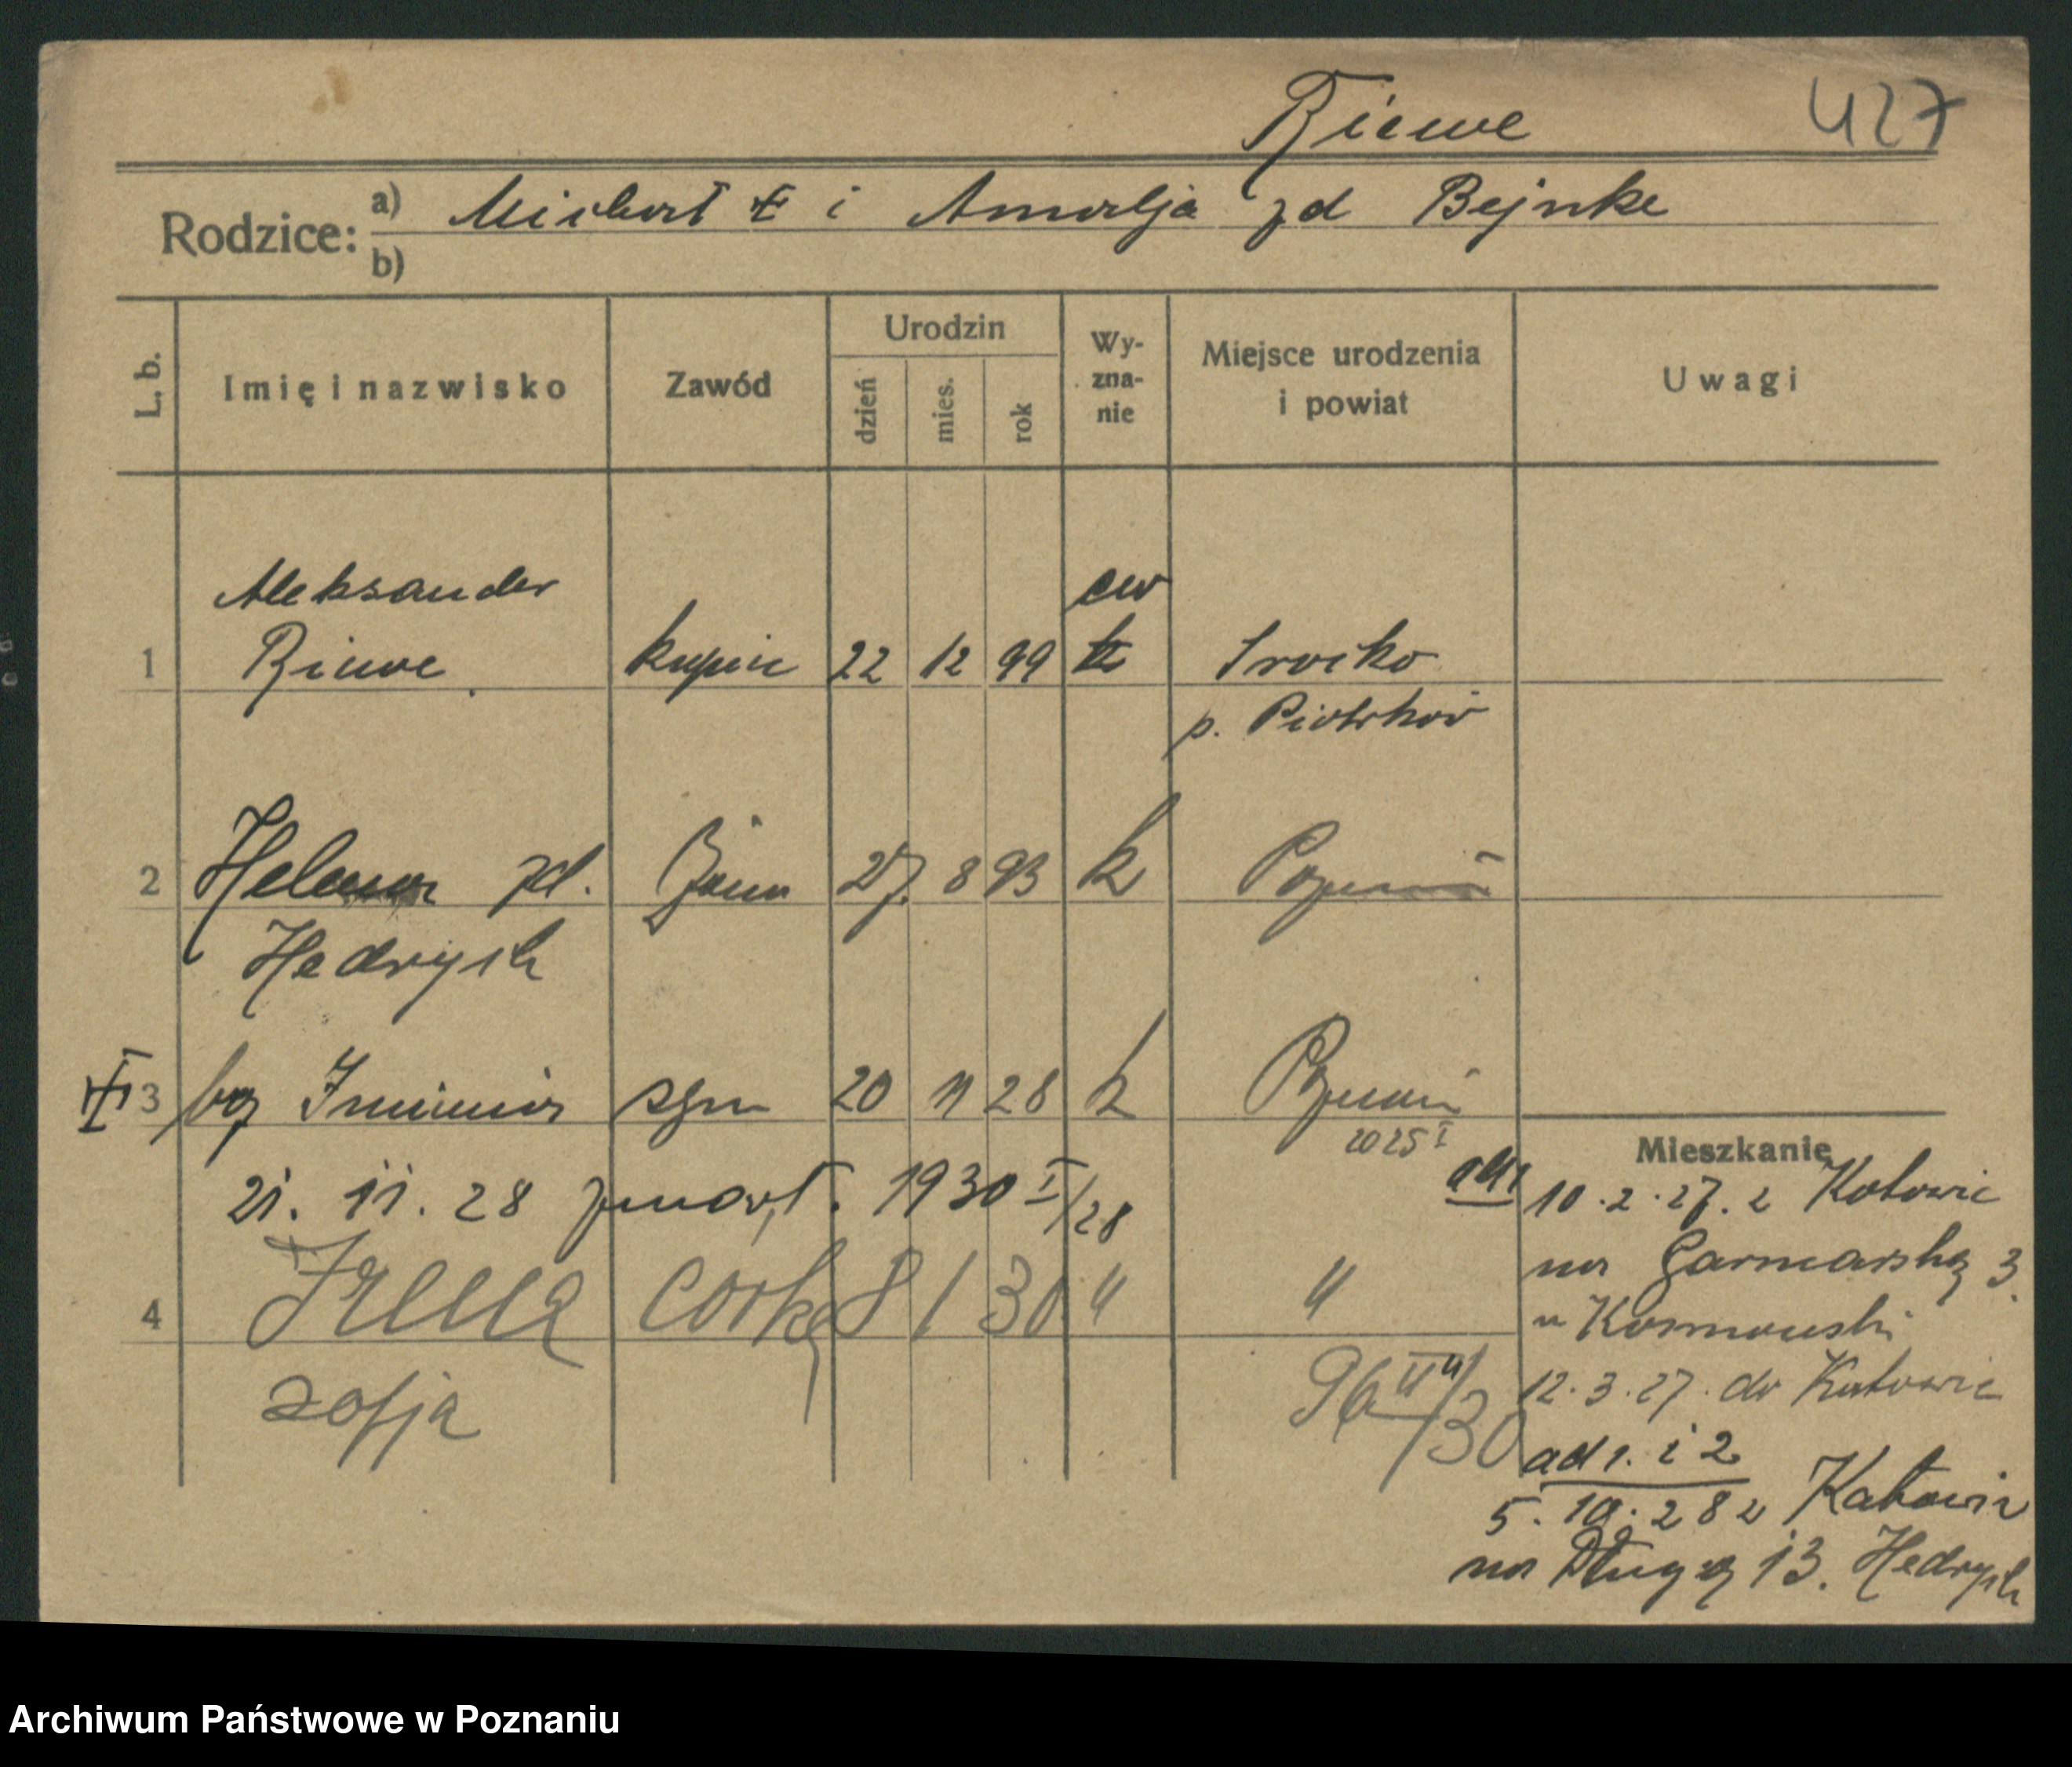 427
Rodzice: a) Michał i Amalja zd Bejnke
b)
L. b. Imię i nazwisko Zawód Urodzin dzień mies. rok Wy-zna-nie Miejsce urodzenia i powiat Uwagi
Aleksander ew
1 kupiec 22 12 99 k Srocko
p. Piotrków
2 Helena zd. żona 27. 8 93 k Poznań
Hedrych
3 bez Imienia syn 20 11 28 k Poznań
20 25 I
Mieszkanie
21. 11. 28 zmarł. 1930 I/28
ad 1 10.2.27. z Katowic
na Garncarską 3.
4 Irena córka 8 1 30 " "
u Kosmowski
Zofja
12.3.27. do Katowic
ad 1. i 2
5. 10. 28 z Katowic
na Długą 13. Hedrych
Archiwum Państwowe w Poznaniu